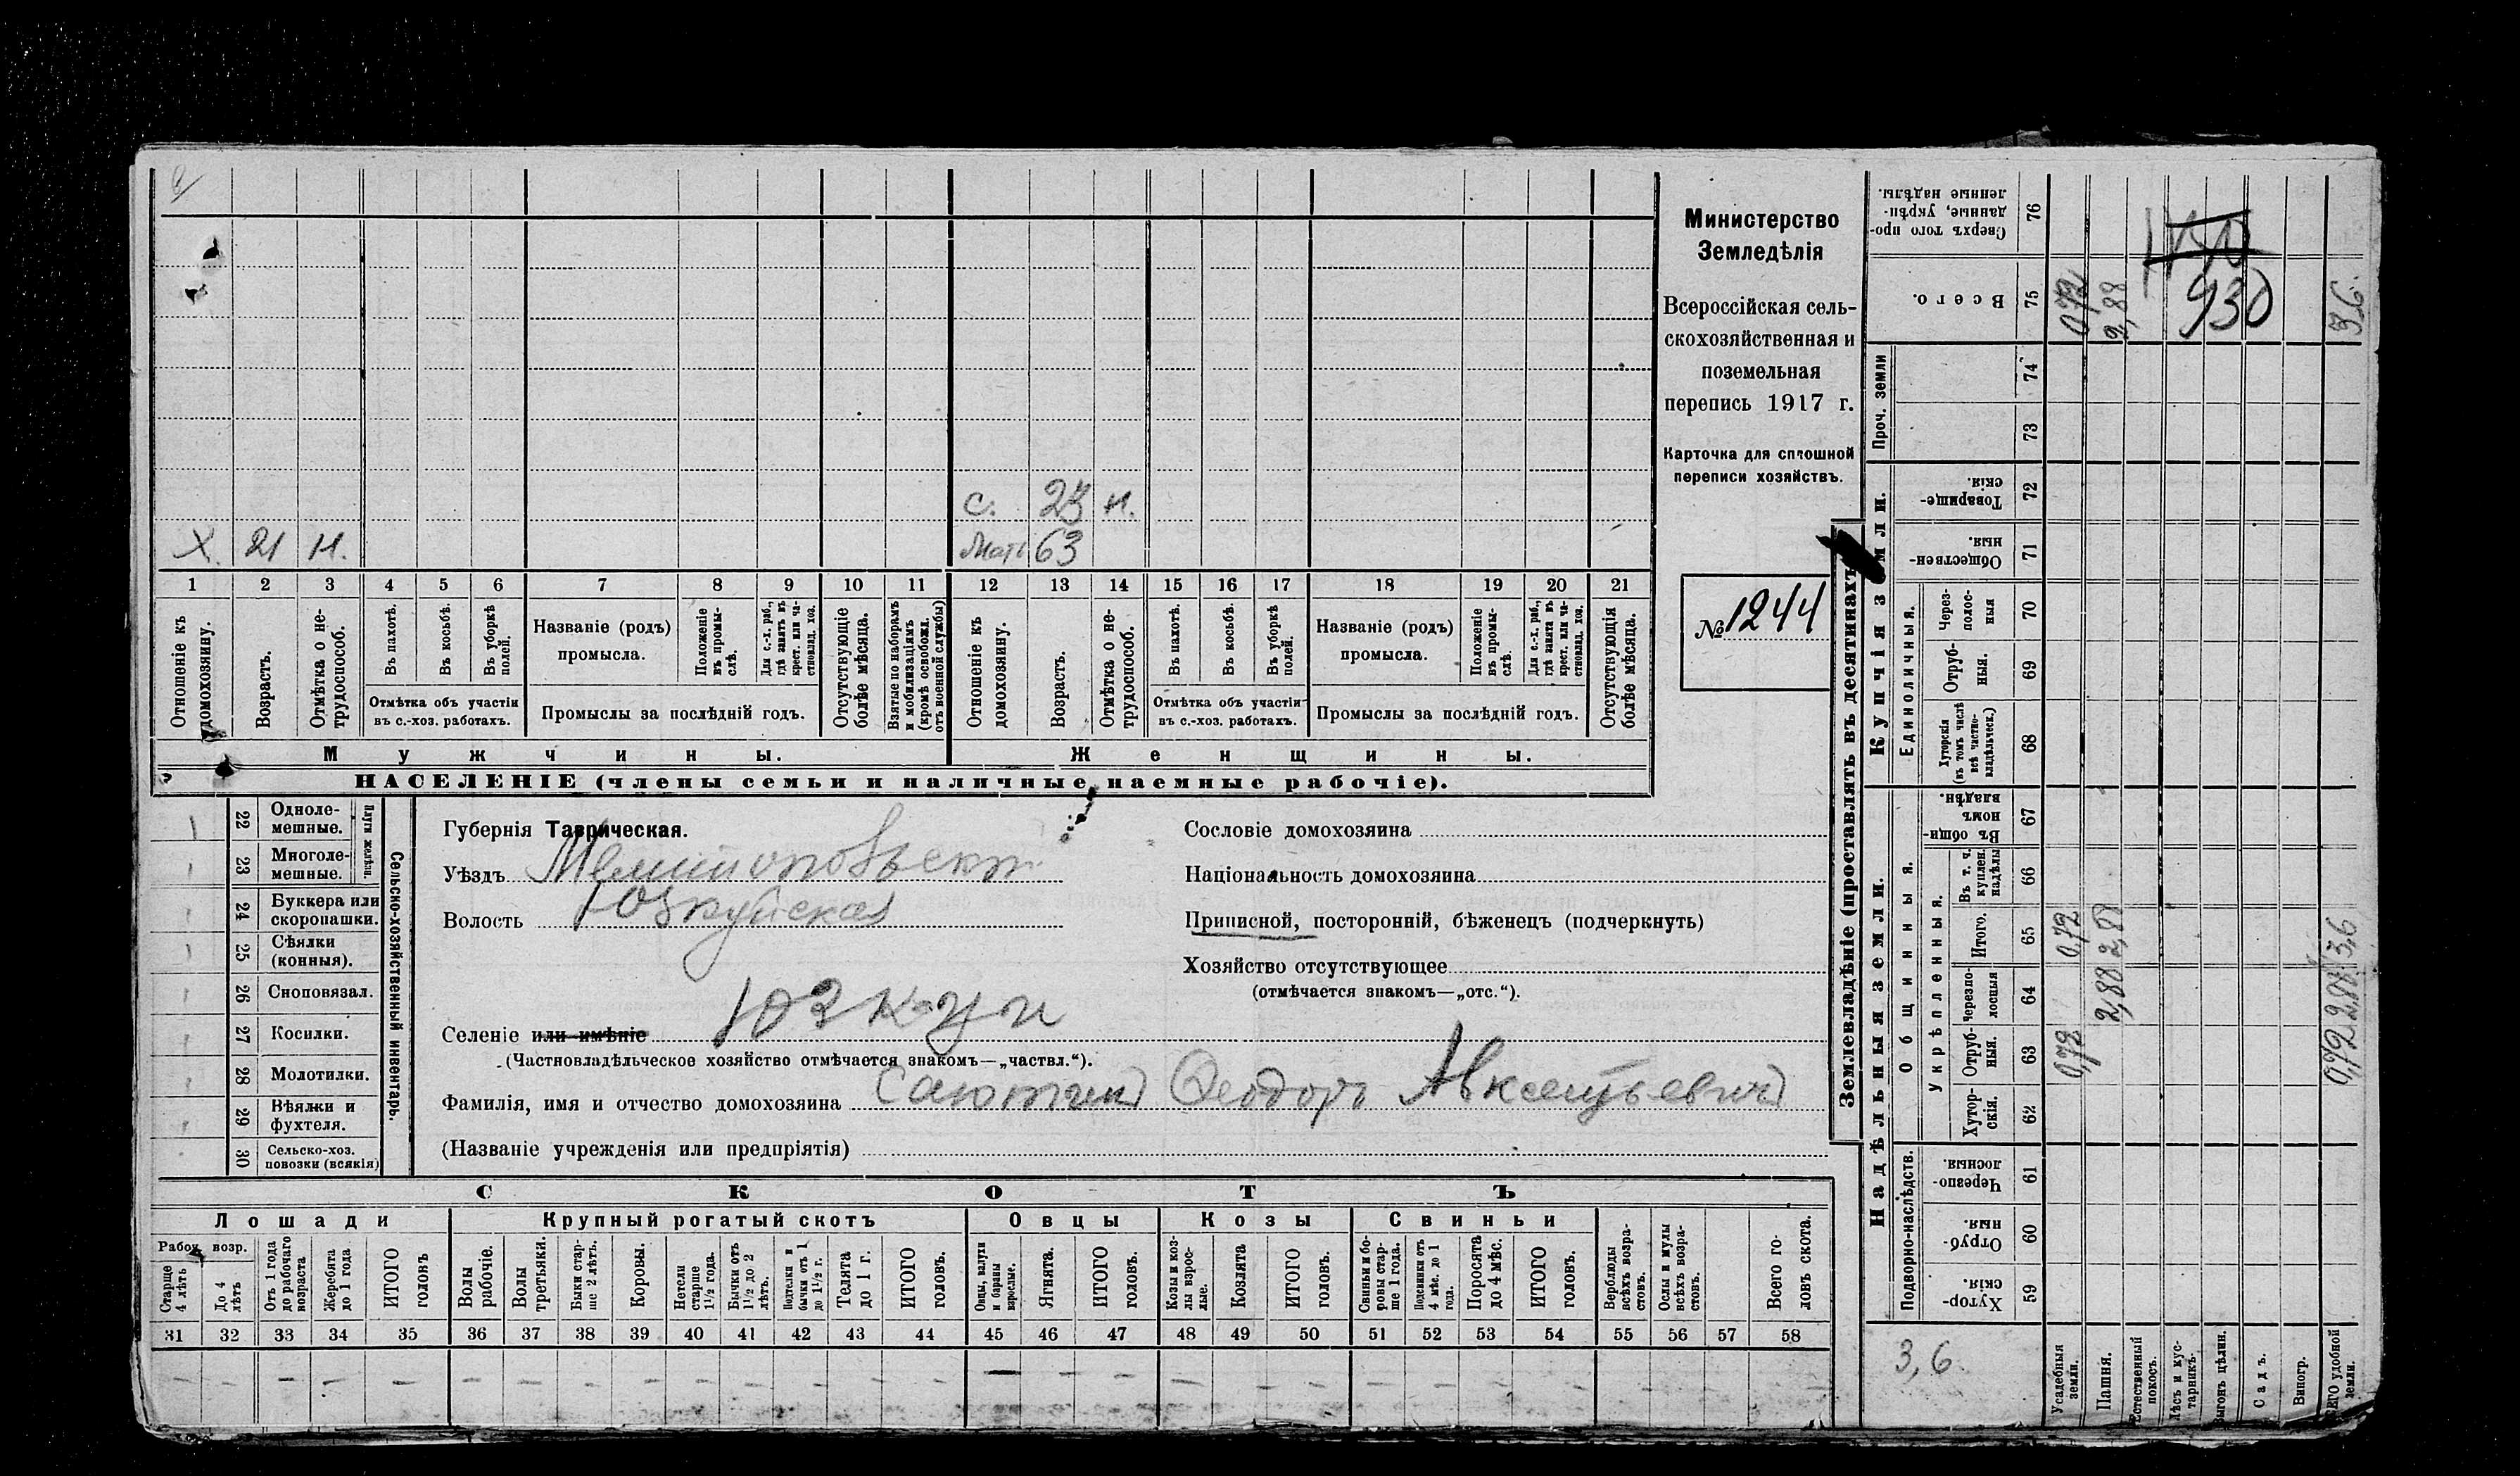 Министерство
Земледѣлія
Всероссійская сель-
скохозяйственная и
поземельная
перепись 1917 г.
Карточка для сплошной
переписи хозяйствъ.
№ 1244
с. 23 н.
Х 21 н. Мать 63
1 2 3 4 5 6 7 8 9 10 11 12 13 14 15 16 17 18 19 20 21
Отношеніе къ домохозяину.
Возрастъ.
Отмѣтка о не-трудоспособ.
Въ пахотѣ.
Въ косьбѣ.
Въ уборкѣ полей.
Отмѣтка объ участіи
въ с.-хоз. работахъ.
Названіе (родъ)
промысла.
Положеніе въ промы-слѣ.
Для с.-х. раб., гдѣ занятъ въ крест. или ча-стновлад. хоз.
Промыслы за послѣдній годъ.
Отсутствующіе болѣе мѣсяца.
Взятые по наборамъ и мобилизаціямъ (кромѣ освобожд. отъ военной службы)
Отношеніе къ домохозяину.
Возрастъ.
Отмѣтка о не-трудоспособ.
Въ пахотѣ.
Въ косьбѣ.
Въ уборкѣ полей.
Отмѣтка объ участіи
въ с.-хоз. работахъ.
Названіе (родъ)
промысла.
Положеніе въ промы-слѣ.
Для с.-х. раб., гдѣ занята въ крест. или ча-стновлад. хоз.
Промыслы за послѣдній годъ.
Отсутствующія болѣе мѣсяца.
Мужчины. Женщины.
НАСЕЛЕНІЕ (члены семьи и наличные наемные рабочіе).
Сельско-хозяйственный инвентарь.
Плуги желѣзн.
22 Одноле-мешные.
23 Многоле-мешные.
24 Буккера или скоропашки.
25 Сѣялки (конныя).
26 Сноповязал.
27 Косилки.
28 Молотилки.
29 Вѣялки и фухтеля.
30 Сельско-хоз. повозки (всякія)
Губернія Таврическая.
Уѣздъ Мелитопольск
Волость Юзкуйская
Селеніе или имѣніе Юзкуи
(Частновладѣльческое хозяйство отмѣчается знакомъ—„частвл.“).
Фамилія, имя и отчество домохозяина Саютин Ѳеодоръ Авксентьевич
(Названіе учрежденія или предпріятія)
Сословіе домохозяина
Національность домохозяина
Приписной, посторонній, бѣженецъ (подчеркнуть)
Хозяйство отсутствующее
(отмѣчается знакомъ—„отс.“).
СКОТЪ
Лошади
Рабоч. возр.
Старше 4 лѣтъ
До 4 лѣтъ
Отъ 1 года до рабочаго возраста
Жеребята до 1 года
ИТОГО головъ
Крупный рогатый скотъ
Волы рабочіе.
Волы третьяки.
Быки стар-ше 2 лѣтъ.
Коровы.
Нетели старше 1½ года.
Бычки отъ 1½ до 2 лѣтъ.
Подтелки и бычки отъ 1 до 1½ г.
Телята до 1 г.
ИТОГО головъ.
Овцы
Овцы, валухи и бараны взрослые.
Ягнята.
ИТОГО головъ.
Козы
Козы и коз-лы взрос-лые.
Козлята
ИТОГО головъ.
Свиньи
Свиньи и бо-ровы стар-ше 1 года.
Подсвинки отъ 4 мѣс. до 1 года.
Поросята до 4 мѣс.
ИТОГО головъ.
Верблюды всѣхъ возра-стовъ.
Ослы и мулы всѣхъ возра-стовъ.
Всего го-ловъ скота.
31 32 33 34 35 36 37 38 39 40 41 42 43 44 45 46 47 48 49 50 51 52 53 54 55 56 57 58
Землевладѣніе (проставлять въ десятинахъ
Надѣльныя земли.
Подворно-наслѣдств.
Хутор-скія. 59
Отруб-ныя. 60
Черезпо-лосныя. 61
Общинныя.
Укрѣпленныя.
Хутор-скія. 62
Отруб-ныя. 63
Черезпо-лосныя 64
Итого. 65
Въ т. ч. куплен. надѣлы 66
Въ общин-номъ владѣн. 67
Купчія земли.
Единоличныя.
Хуторскія (въ томъ числѣ всѣ частно-владѣльческ.) 68
Отруб-ныя. 69
Через-полос-ныя 70
Обществен-ныя. 71
Товарище-скія. 72
Проч. земли
73
74
Всего. 75
Сверхъ того про-данные, укрѣп-ленные надѣлы. 76
Усадебныя земли. 0,72 0,72 0,72
Пашня. 2,88 2,88 2,88
Естественный покосъ.
Лѣсъ и кус-тарникъ.
Выгонъ цѣлин.
Садъ.
Виногр.
удобной земли. 0,72 2,88 3,6 3,6
930
3,6